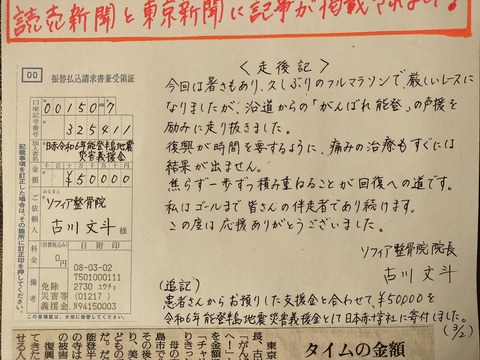 読売新聞と東京新聞に記事が掲載されました!
00
振替払込請求書兼受領証
口座記号番号
00150 7
325411
加入者名
日赤令和6年能登半島地震
災害義援金
金額
千 百 十 万 千 百 十 円
¥50000
おなまえ
ご依頼人
ソフィア整骨院
古川 文斗
料金
(消費税込み)
0円
備考
日附印
08-03-02
T501000111
免除 2730 ユウチョ
災害等 (01217)
義援金. N94150003
記載事項を訂正した場合は、その箇所に訂正印を押してください。
〈走後記〉
今回は暑さもあり、久しぶりのフルマラソンで、厳しいレースに
なりましたが、沿道からの「がんばれ能登」の声援を
励みに走り抜きました。
復興が時間を要するように、痛みの治療もすぐには
結果が出ません。
焦らず一歩ずつ積み重ねることが回復への道です。
私はゴールまで皆さんの伴走者であり続けます。
この度は応援ありがとうございました。
ソフィア整骨院院長
古川 文斗
(追記)
患者さんからお預りした支援金と合わせて、¥50,000を
令和6年能登半島地震災害義援金として日本赤十字社に寄付しました。
(3/2)
タイムの金額